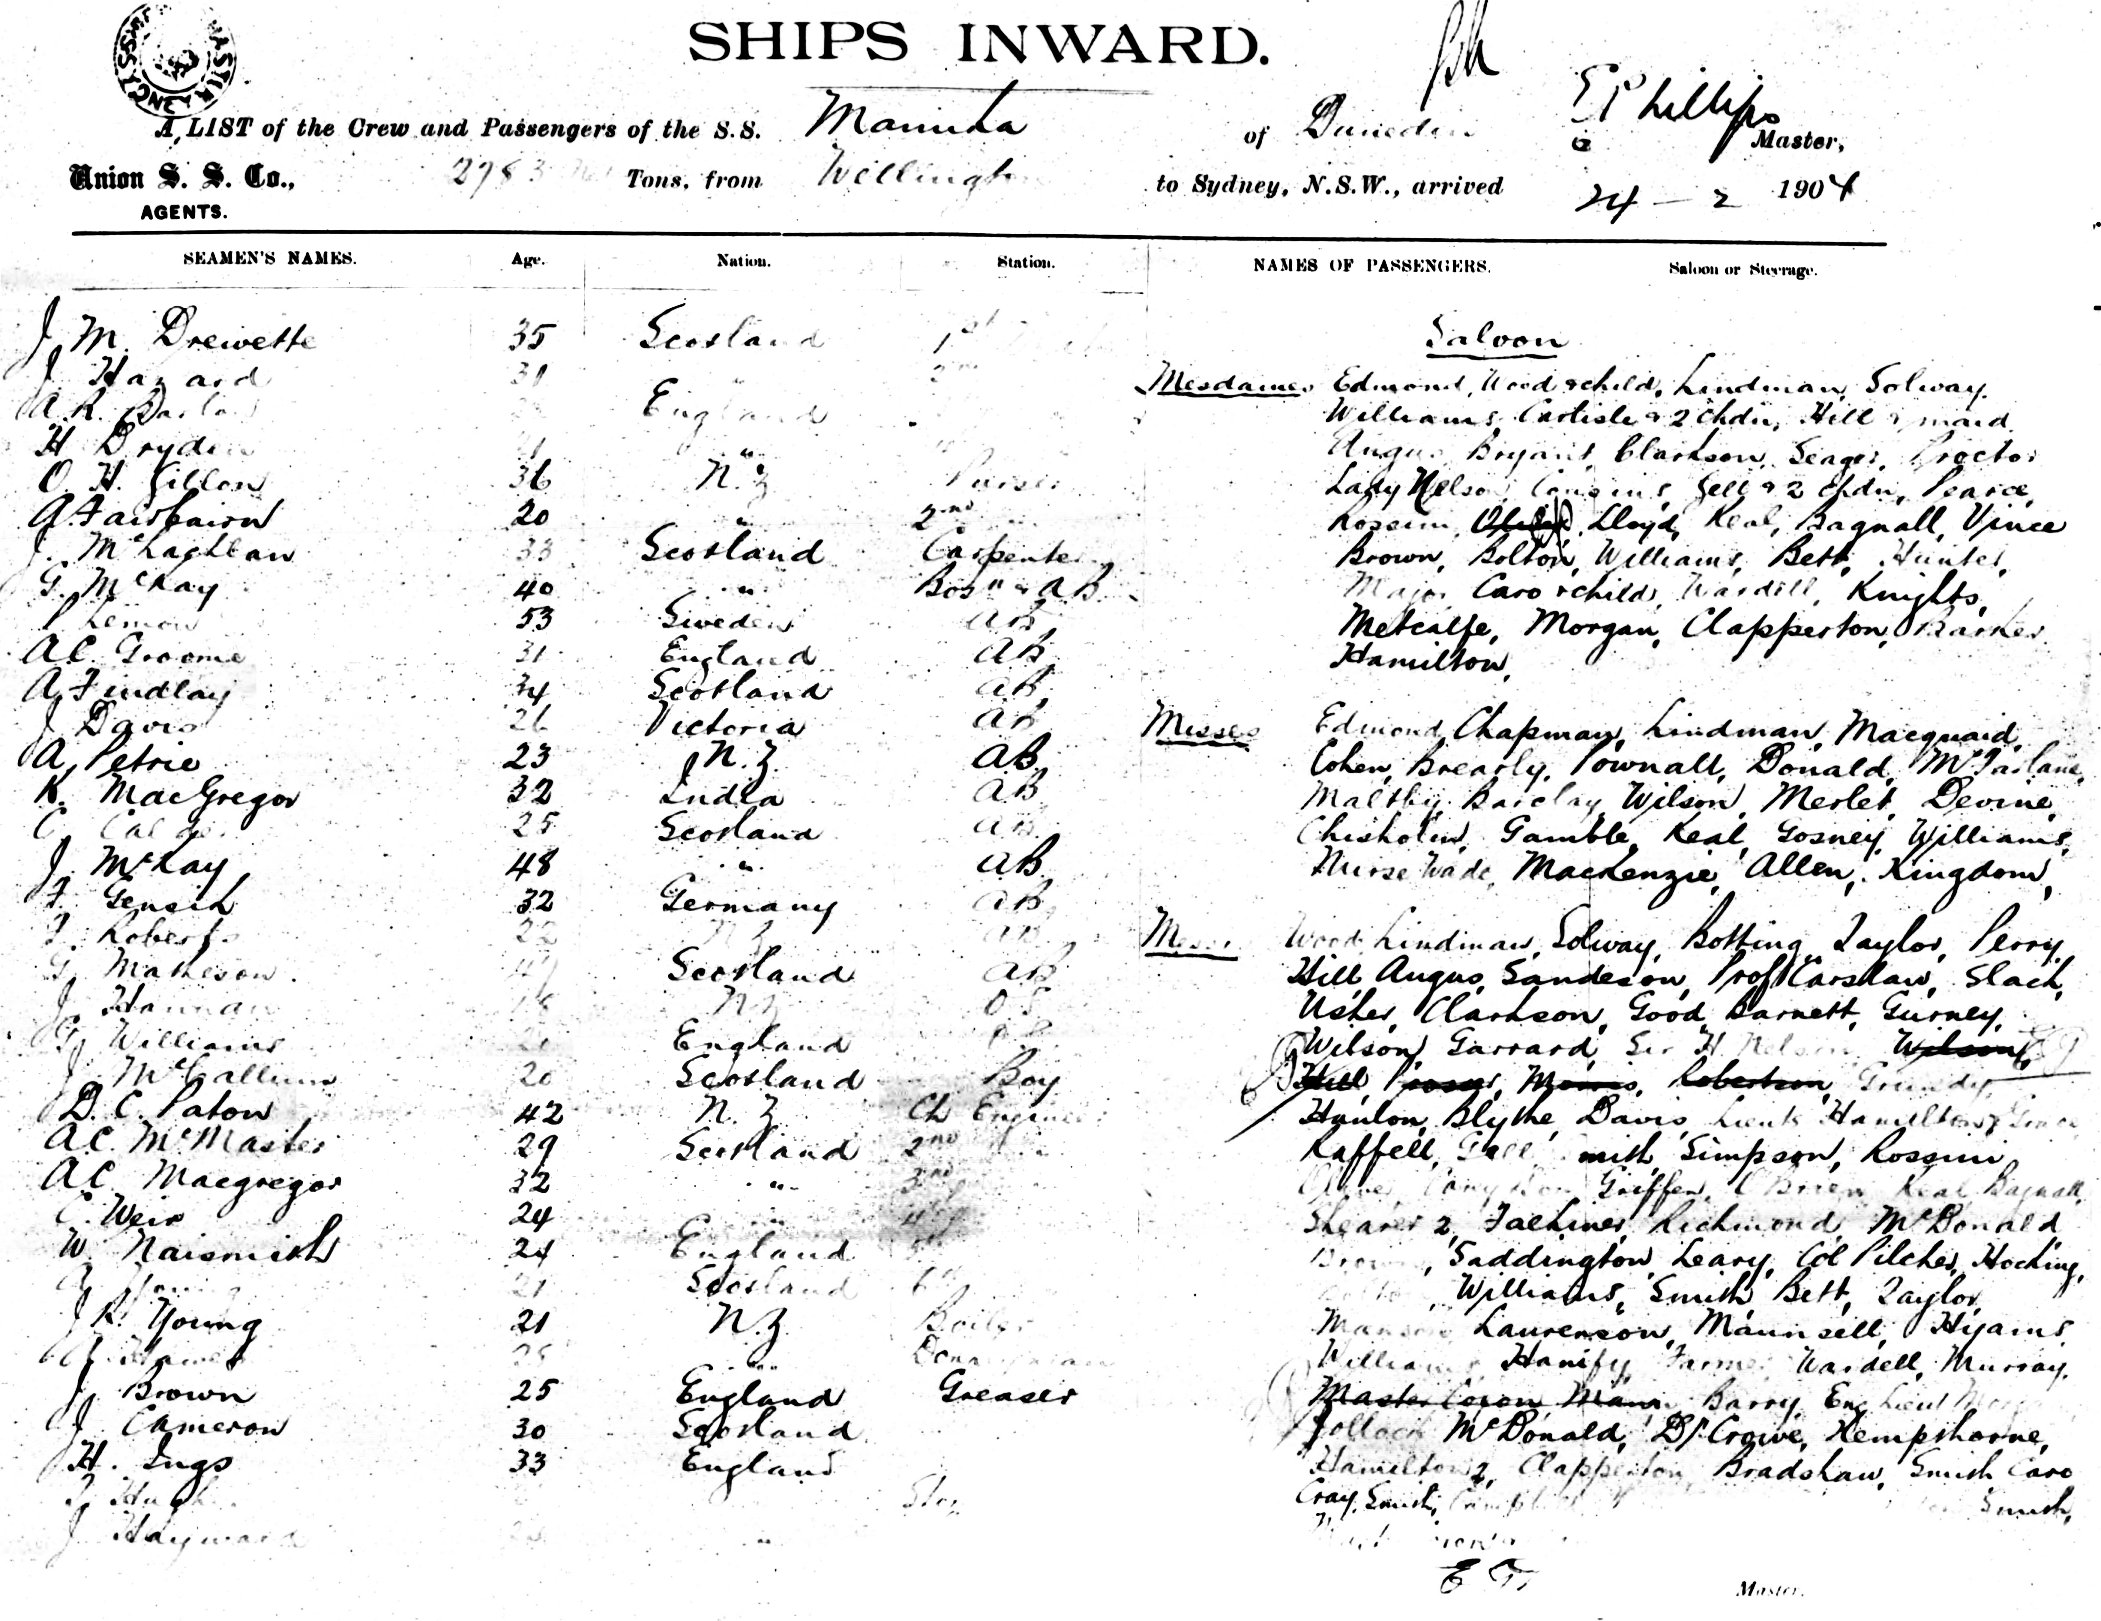 SHIPS INWARD.
A LIST of the Crew and Passengers of the S.S. Manuka of Dunedin E Phillips Master,
Union S. S. Co., 2983 Tons, from Wellington to Sydney, N.S.W., arrived 24 - 2 1904
AGENTS.
SEAMEN'S NAMES. Age. Nation. Station.
J. M. Drewette 35 Scotland 1st
J. Hazard 2nd
A. R. England
H Dryden "
O. H. Gillon 36 N.Z Purser
A. Fairbairn 20 " 2nd "
J. McLachlan 33 Scotland Carpenter
G. McKay 40 " Bosn & AB
P Lemon 53 Sweden AB
A.C. Groome 31 England AB
A. Findlay 34 Scotland AB
J. Davis 26 Victoria AB
A. Petrie 23 N.Z. AB
K. MacGregor 32 India AB
C. 25 Scotland AB
J. McKay 48 " AB
F. Gensch 32 Germany AB
F. Roberts 22 N.Z AB
G. Matheson Scotland AB
J. Hannan 18 NZ O.S
G. Williams England
J. McCallum 20 Scotland Boy
D. C. Paton 42 N.Z Ch Engineer
A.C. McMaster 29 Scotland 2nd
A.C. Macgregor 32 " 3rd
C. Weir 24 " 4th
W. Naismith 24 England 5th
21 Scotland 6th
J. R. Young 21 N.Z. Boiler
25 " Donkeyman
J. Brown 25 England Greaser
J. Cameron 30 Scotland
H. Ings 33 England
J. Hayward "
NAMES OF PASSENGERS. Saloon or Steerage.
Saloon
Mesdames Edmond, Wood & child, Lindman, Solway,
Williams, Carlisle & 2 chdn, Hill & maid
Angus Bryant, Clarkson, Seager, Proctor
Lady Nelson, Cousins, Gell & 2 chdn, Pearce,
Rossini, Lloyd, Keal, Bagnall, Vince
Brown, Bolton, Williams, Bett, Hunter,
Major, Caro & child, Wardill, Knights,
Metcalfe, Morgan, Clapperton, Barker
Hamilton,
Misses Edmond, Chapman, Lindman, Macquaid,
Cohen, Brearly, Pownall, Donald, McFarlane,
Maltby, Barclay, Wilson, Merlet, Devine,
Chisholm, Gamble, Keal, Gosney, Williams,
Nurse Wade, MacKenzie, Allen, Kingdom,
Messrs Wood, Lindman, Solway, Botting, Taylor, Perry,
Hill, Angus, Sandeson, Prof Carslaw, Slack,
Usher, Clarkson, Good, Barnett, Gurney,
Wilson, Garrard, Sir H Nelson, Wilson,
Hill Prosser, Morris, Robertson, Grundy,
Hanlon, Blythe, Davis, Lieut Hamilton,
Raffell, Gell, Smith, Simpson, Rossini,
Griffen, O'Brien, Keal, Bagnall,
Shearer 2, Faehner, Richmond, McDonald,
Brown, Saddington, Leary, Col Pilcher, Hocking,
Bolton, Williams, Smith, Bett, Taylor,
Manson, Laurenson, Maunsell, Hyams,
Williams, Hanify, Farmer, Wardell, Murray,
Master Coron, Mann, Barry, Eng Lieut
Pollock, McDonald, Dr Crowe, Kempthorne,
Hamilton 2, Clapperton, Bradshaw, Smith, Caro
Cray, Smith, Campbell Smith,
Master.